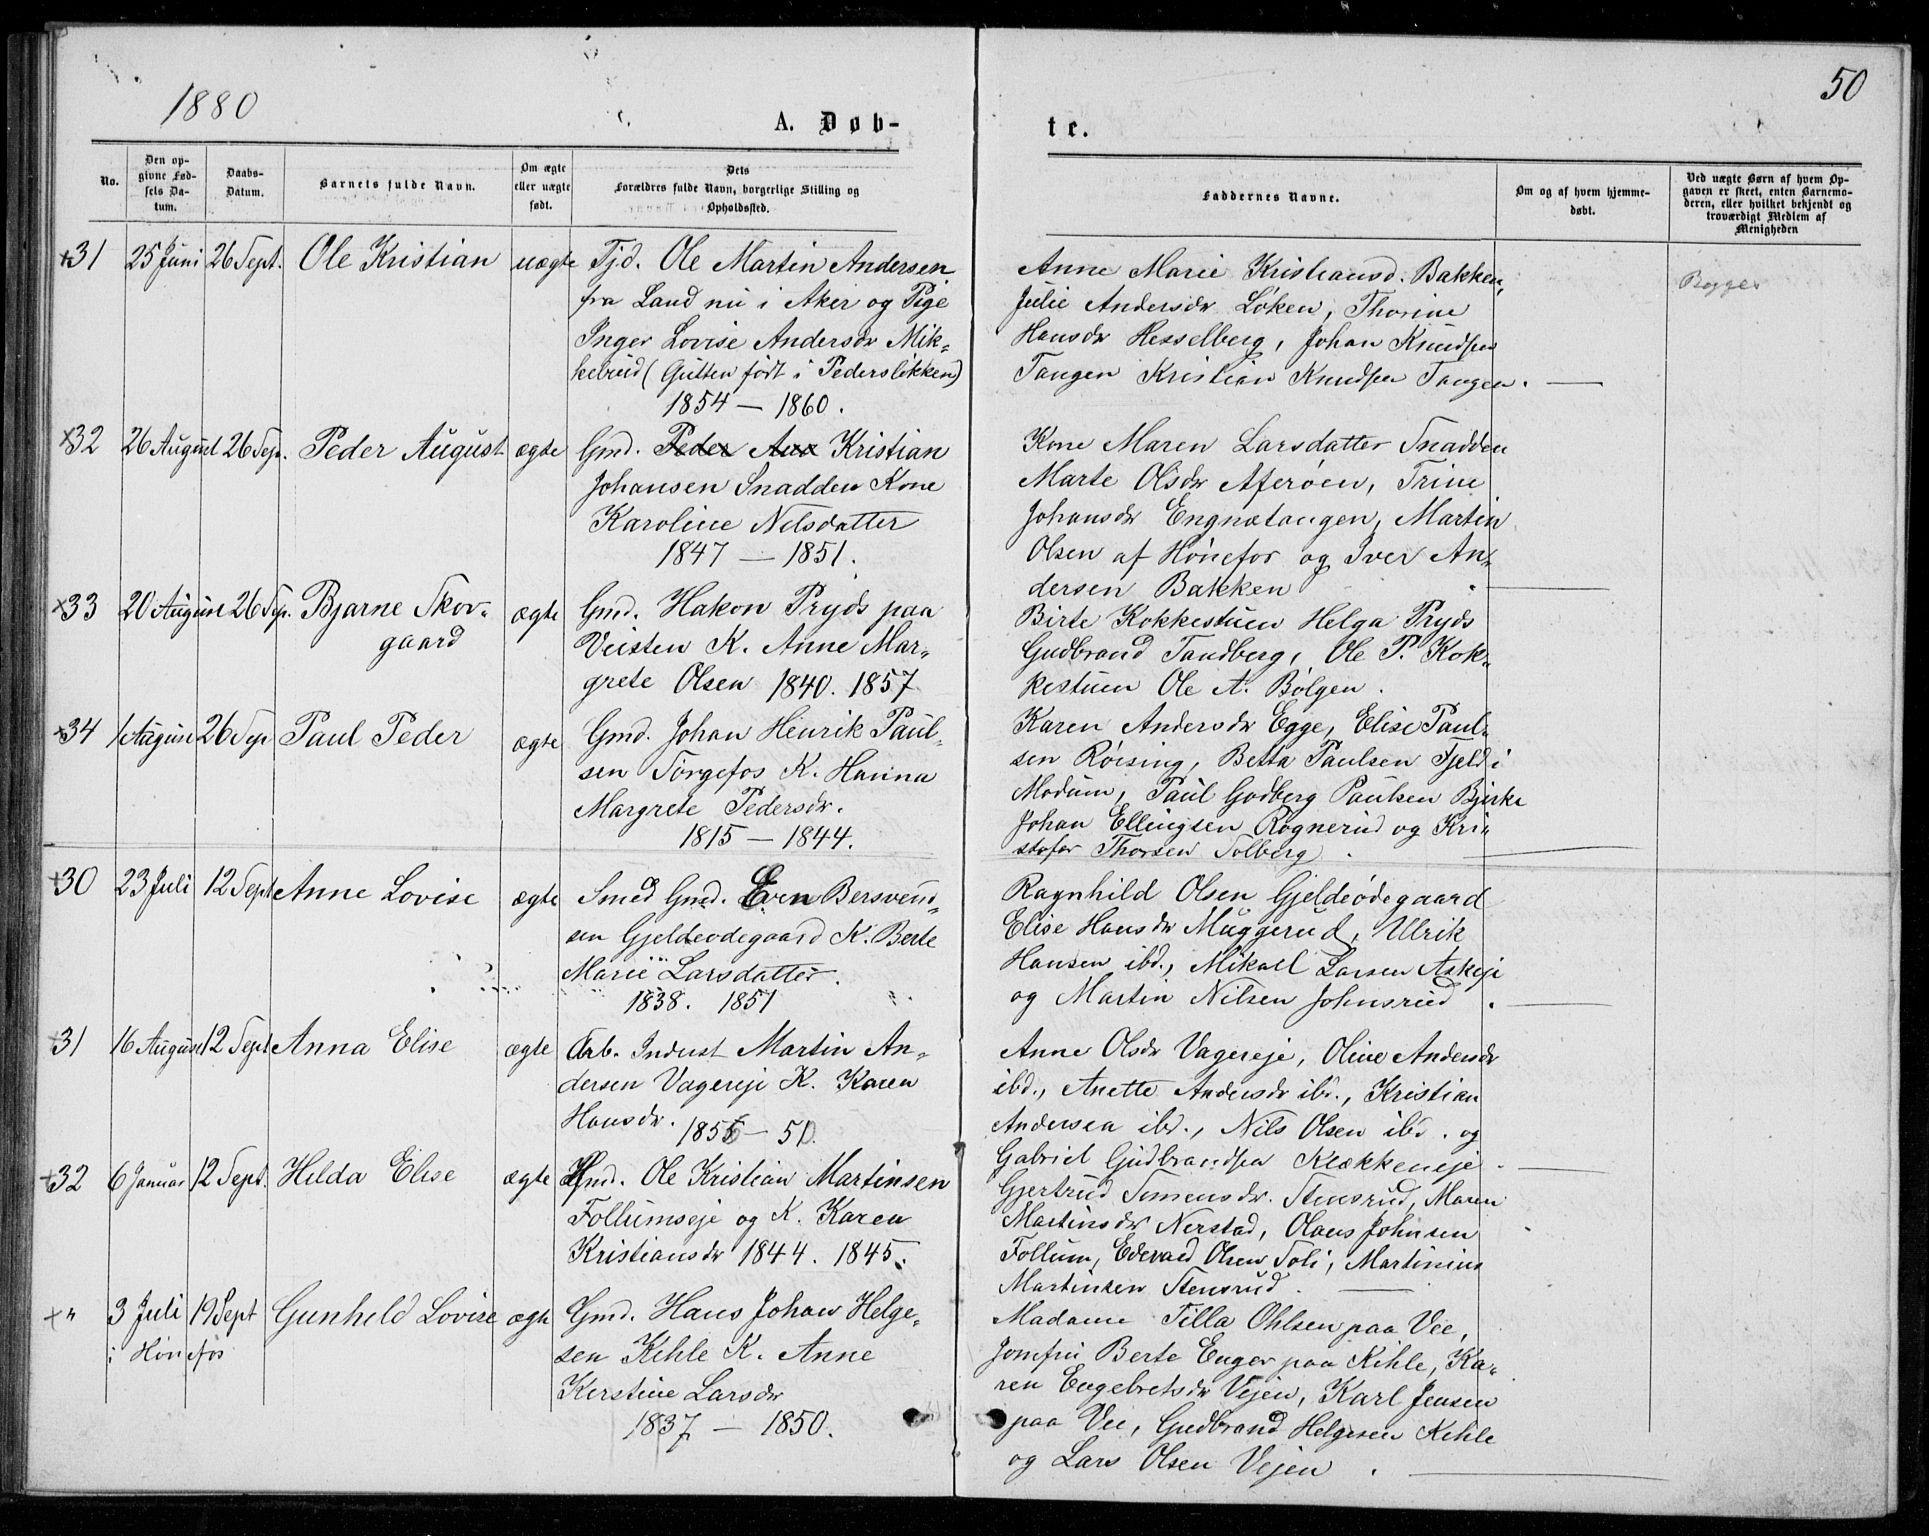 1880
50
A. Døb-
te.
No.
Den op-
givne Fød-
sels Da-
tum.
Daabs-
Datum.
Barnets fulde Navn.
Om ægte
eller uægte
født.
Dets
Forældres fulde Navn, borgerlige Stilling og
Opholdssted.
Faddernes Navne.
Om og af hvem hjemme-
døbt.
Ved uægte Børn af hvem Op-
gaven er skeet, enten Barnemo-
deren, eller hvilket bekjendt og
troværdigt Medlem af
Menigheden
31 25 Juni 26 Sept. Ole Kristian uægte Tjd. Ole Martin Andersen
fra Land nu i Aker og Pige
Inger Lovise Andersdr Mik-
kelrud (Gutten født i Pedersløkken)
1854 — 1860.
Anne Marie Kristiansd. Bakken,
Julie Andersdr Løken, Thorine
Hansdr Hesselberg, Johan Knudsen
Tangen Kristian Knudsen Tangen.
32 26 August 26 Sep. Peder August ægte Gmd. Peder Aux Kristian
Johansen Snadden Kone
Karoline Nilsdatter
1847 — 1851.
Kone Maren Larsdatter Snadden
Marte Olsdr Aferøen, Trine
Johansdr Engnætangen, Martin
Olsen af Hønefos og Iver An-
dersen Bakken
33 20 August 26 Sep. Bjarne Skov-
gaard
ægte Gmd. Hakon Pryds paa
Veisten K. Anne Mar-
grete Olsen 1840. 1857
Birte Kokkestuen Helga Pryds
Gudbrand Tandberg, Ole P. Kok-
kestuen Ole A. Bølgen.
34 1 August 26 Sep Paul Peder ægte Gmd. Johan Henrik Paul-
sen Tørgefos K. Hanna
Margrete Pedersdr.
1815 — 1844.
Karen Andersdr Egge, Elise Paul-
sen Røising, Betta Paulsen Fjeld i
Modum, Paul Godberg Paulsen Bjerke
Johan Ellingsen Rognerud og Kri-
stofer Thorsen Solberg.
30 23 Juli 12 Sept Anne Lovise ægte Smed Gmd. Even Bersvend-
sen Gjeldeødegaard K. Berte
Marie Larsdatter.
1838. 1851
Ragnhild Olsen Gjeldeødegaard
Elise Hansdr Muggerud, Ulrik
Hansen ibd., Mikael Larsen Askeje
og Martin Nilsen Johnsrud.
31 16 August 12 Sept Anna Elise ægte Arb. Indust Martin An-
dersen Vagereje K. Karen
Hansdr. 1856 — 51.
Anne Olsdr Vagereje, Oline Andersdr
ibd., Anette Andersdr ibd., Kristian
Andersen ibd., Nils Olsen ibd. og
Gabriel Gudbrandsen Klækkeneje.
32 6 Januar 12 Sept. Hilda Elise ægte Hmd. Ole Kristian Martinsen
Follumseje og K. Karen
Kristiansdr 1844. 1845.
Gjertrud Simensdr. Stensrud, Maren
Martinsdr Nerstad, Olaus Johnsen
Follum, Edevard Olsen Soli, Martinius
Martinsen Stensrud.
" 3 Juli 19 Sept Gunhild Lovise ægte Gmd. Hans Johan Helge-
i Hønefos
sen Kihle K. Anne
Kerstine Larsdr
1837 — 1850.
Madame Tilla Ohlsen paa Vee,
Jomfru Berte Enger paa Kihle, Ka-
ren Engebretsdr Vejen, Karl Jensen
paa Vee, Gudbrand Helgesen Kihle
og Lars Olsen Vejen.